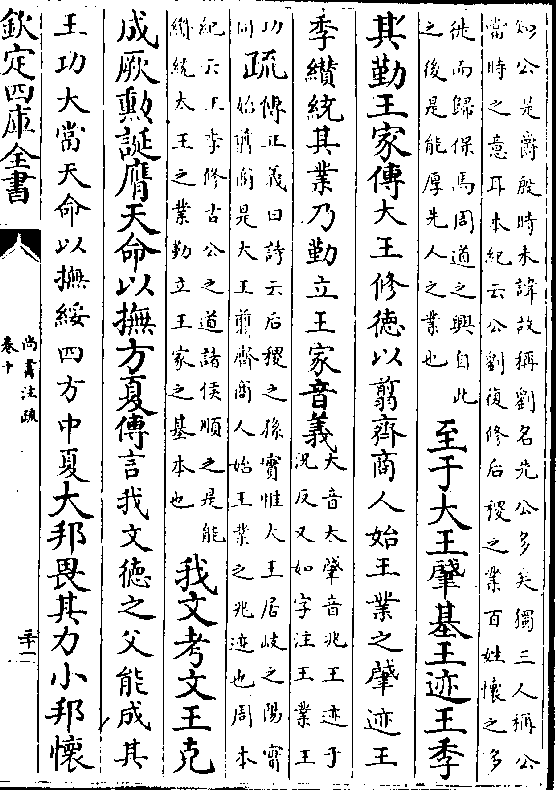 知公是爵殷時未諱故稱劉名先公多矣獨三人稱公
當時之意耳本紀云公劉復修后稷之業百姓懷之多
徙而歸保焉周道之興自此
之後是能厚先人之業也
至于大王肇基王迹王季
其勤王家傳大王修德以翦齊商人始王業之肇迹王
季纘統其業乃勤立王家音義
大音太肇音兆王迹于
況反又如字注王業王
功
同
疏
傳正義曰詩云后稷之孫實惟大王居岐之陽實
始翦商是大王翦齊商人始王業之兆迹也周本
紀云王季修古公之道諸侯順之是能
纘統大王之業勤立王家之基本也
我文考文王克
成厥勳誕膺天命以撫方夏傳言我文德之父能成其
王功大當天命以撫綏四方中夏大邦畏其力小邦懷
欽定四庫全書
尚書注疏
卷十